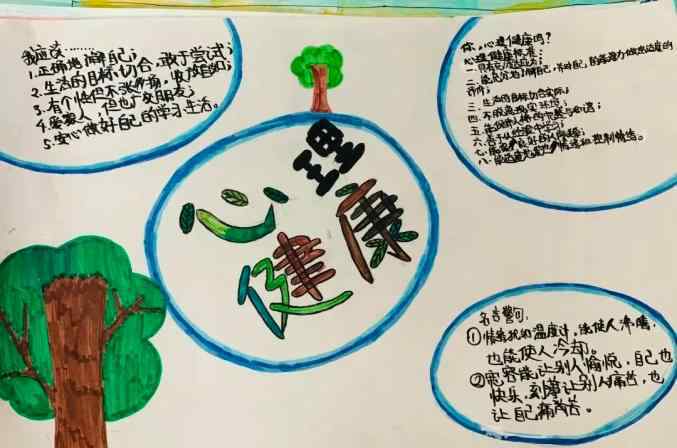 我应该……
1.正确地了解自己；
2.生活的目标切合，敢于尝试；
3.有个性但不张扬，收放自如；
4.爱家人，但也广交朋友；
5.安心做好自己的学习生活。
心理
健康
你心理健康吗？
心理健康标准：
一.
二.能充分地了解自己，并对自己的能力做出适度的
评价；
三.生活的目标切合实际；
四.不脱离现实环境；
五.能保持人格的完整与和谐；
六.善于从经验中学习；
七.能保持良好的人际关系；
八.能适度地 情绪和控制情绪。
名言警句：
①情绪我的温度计，能使人沸腾，
也能使人冷却。
②宽容能让别人愉悦，自己也
快乐，刻薄让别人痛苦，也
让自己痛苦。